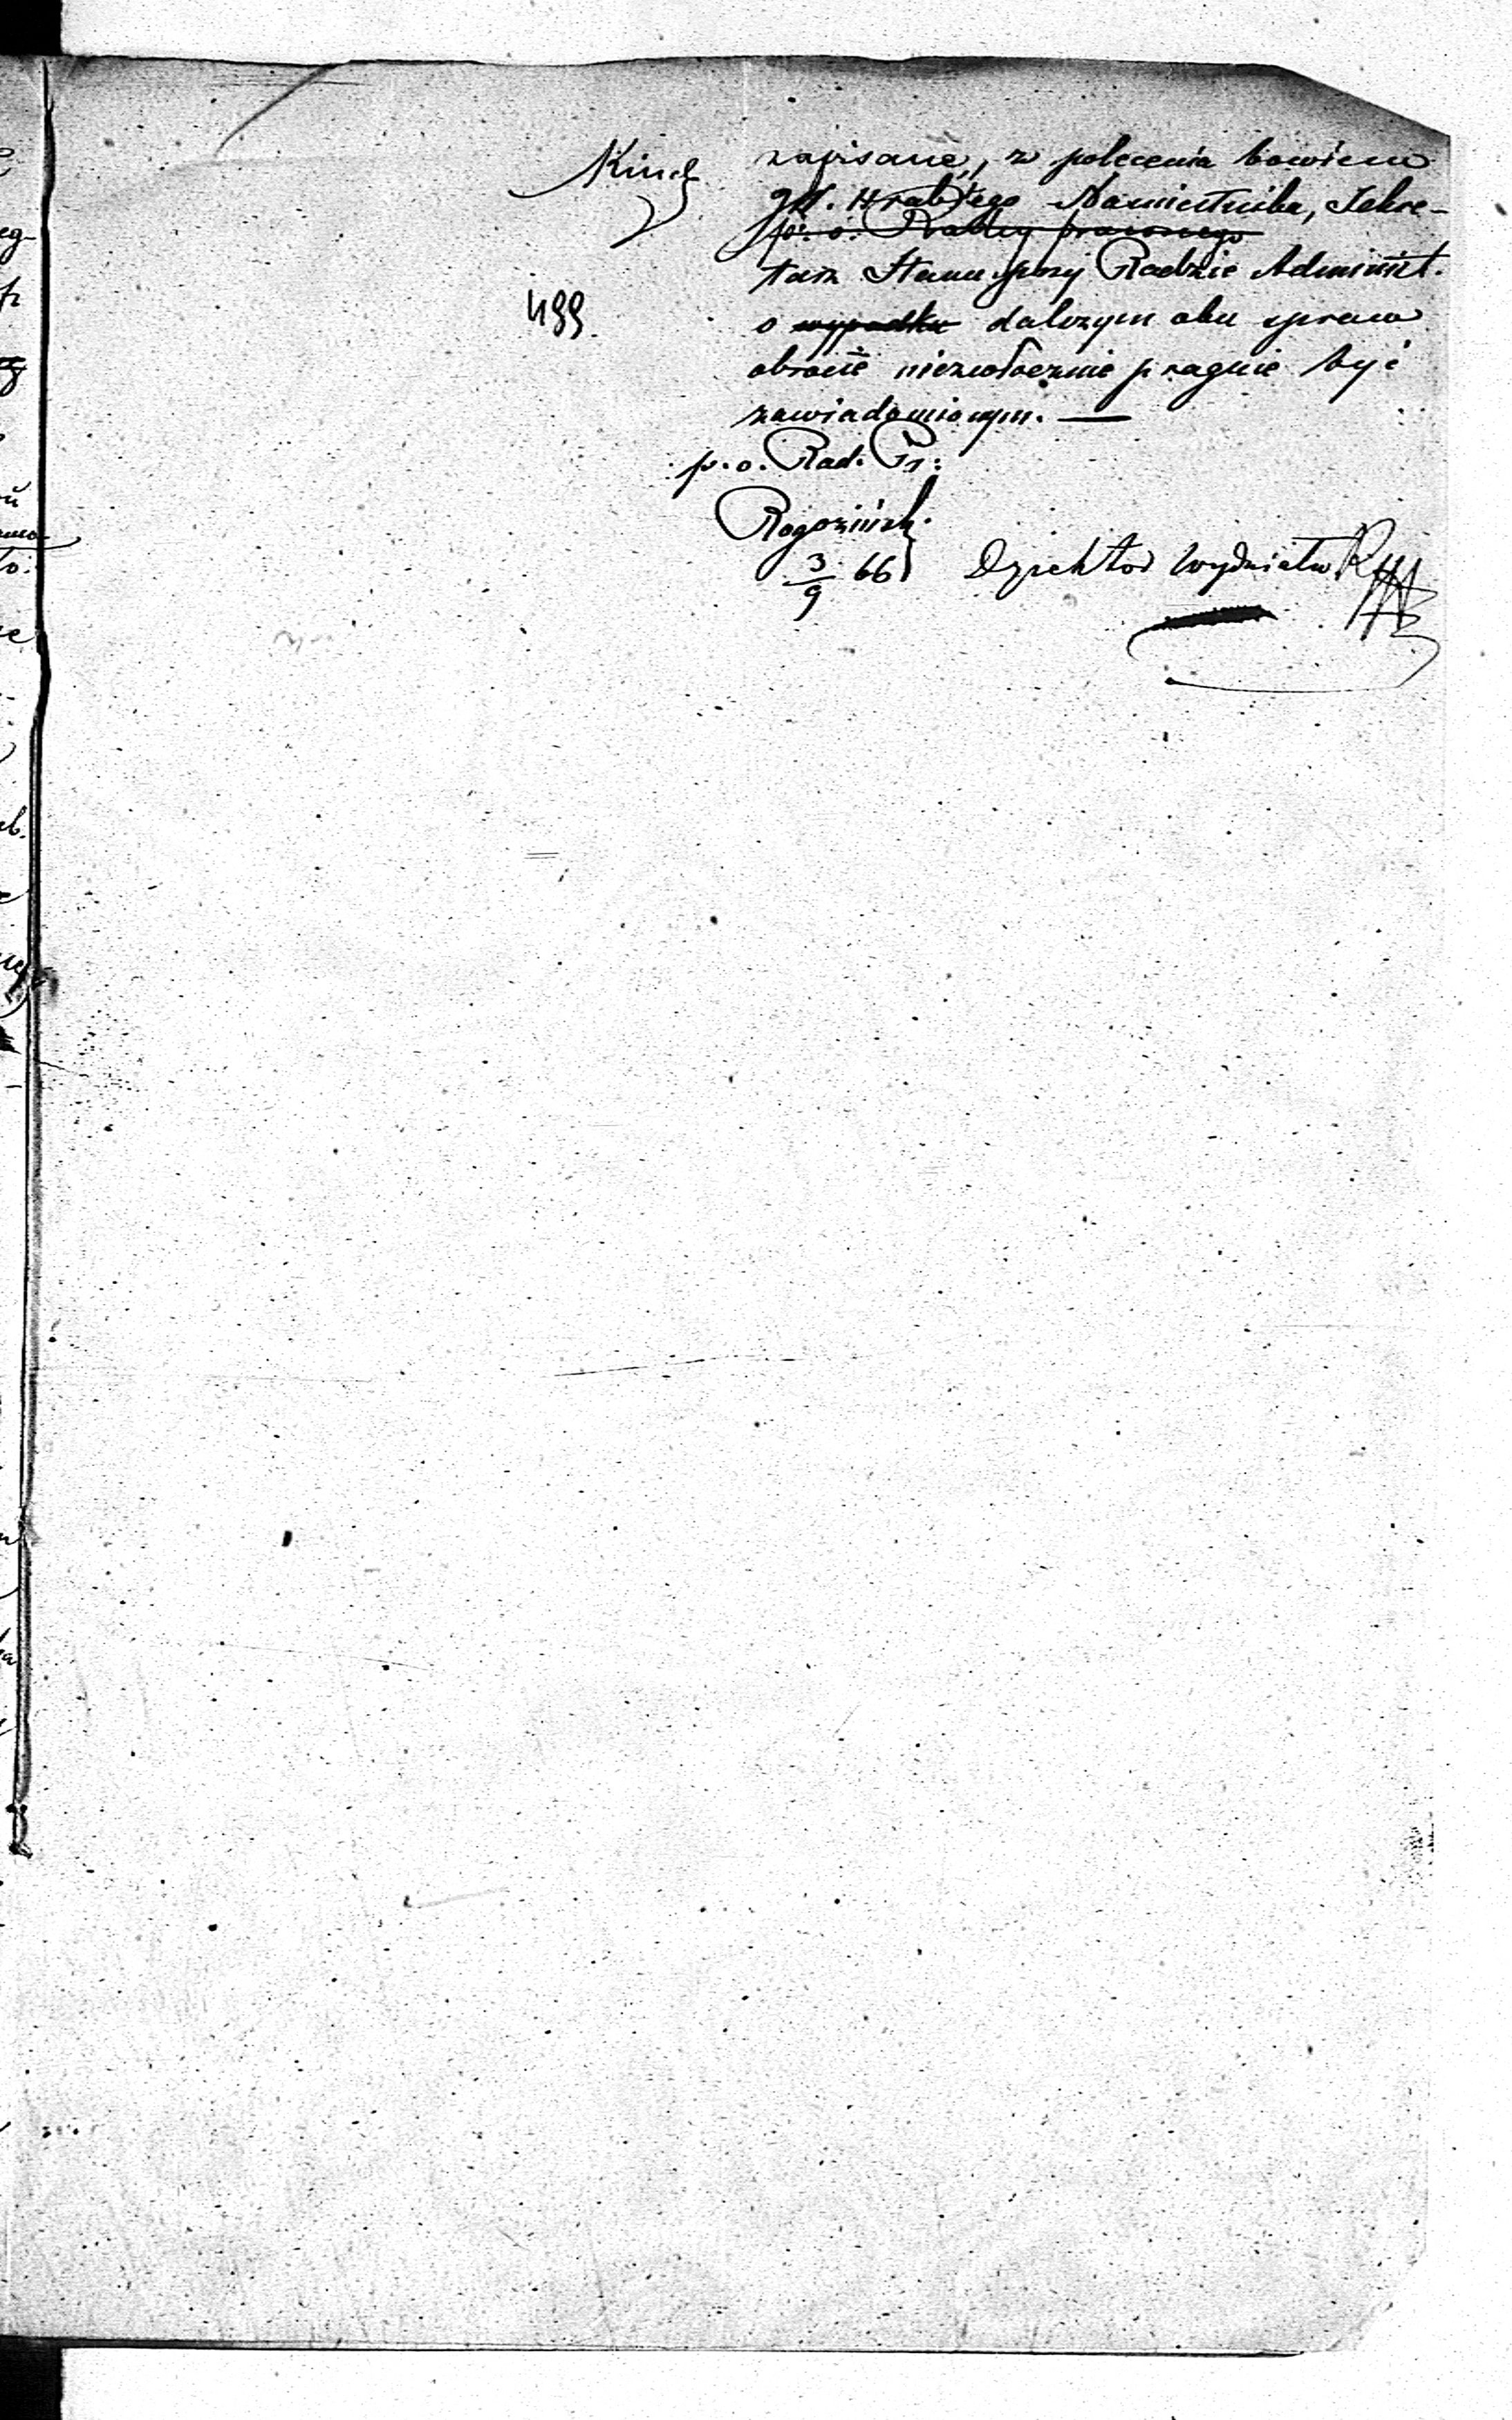 zapisane, z polecenia bowiem
JW. Hrabiego Namiestnika, Sekre-
p. o. Radcy prawnego
tarz Stanu przy Radzie Administ.
499.
o wypadku dalszym obu spraw
obrocie niezwłocznie pragnie być
zawiadomionym. —
p. o. Rad. Pr:
Rogoziński
3/9 66
Dyrektor Wydziału